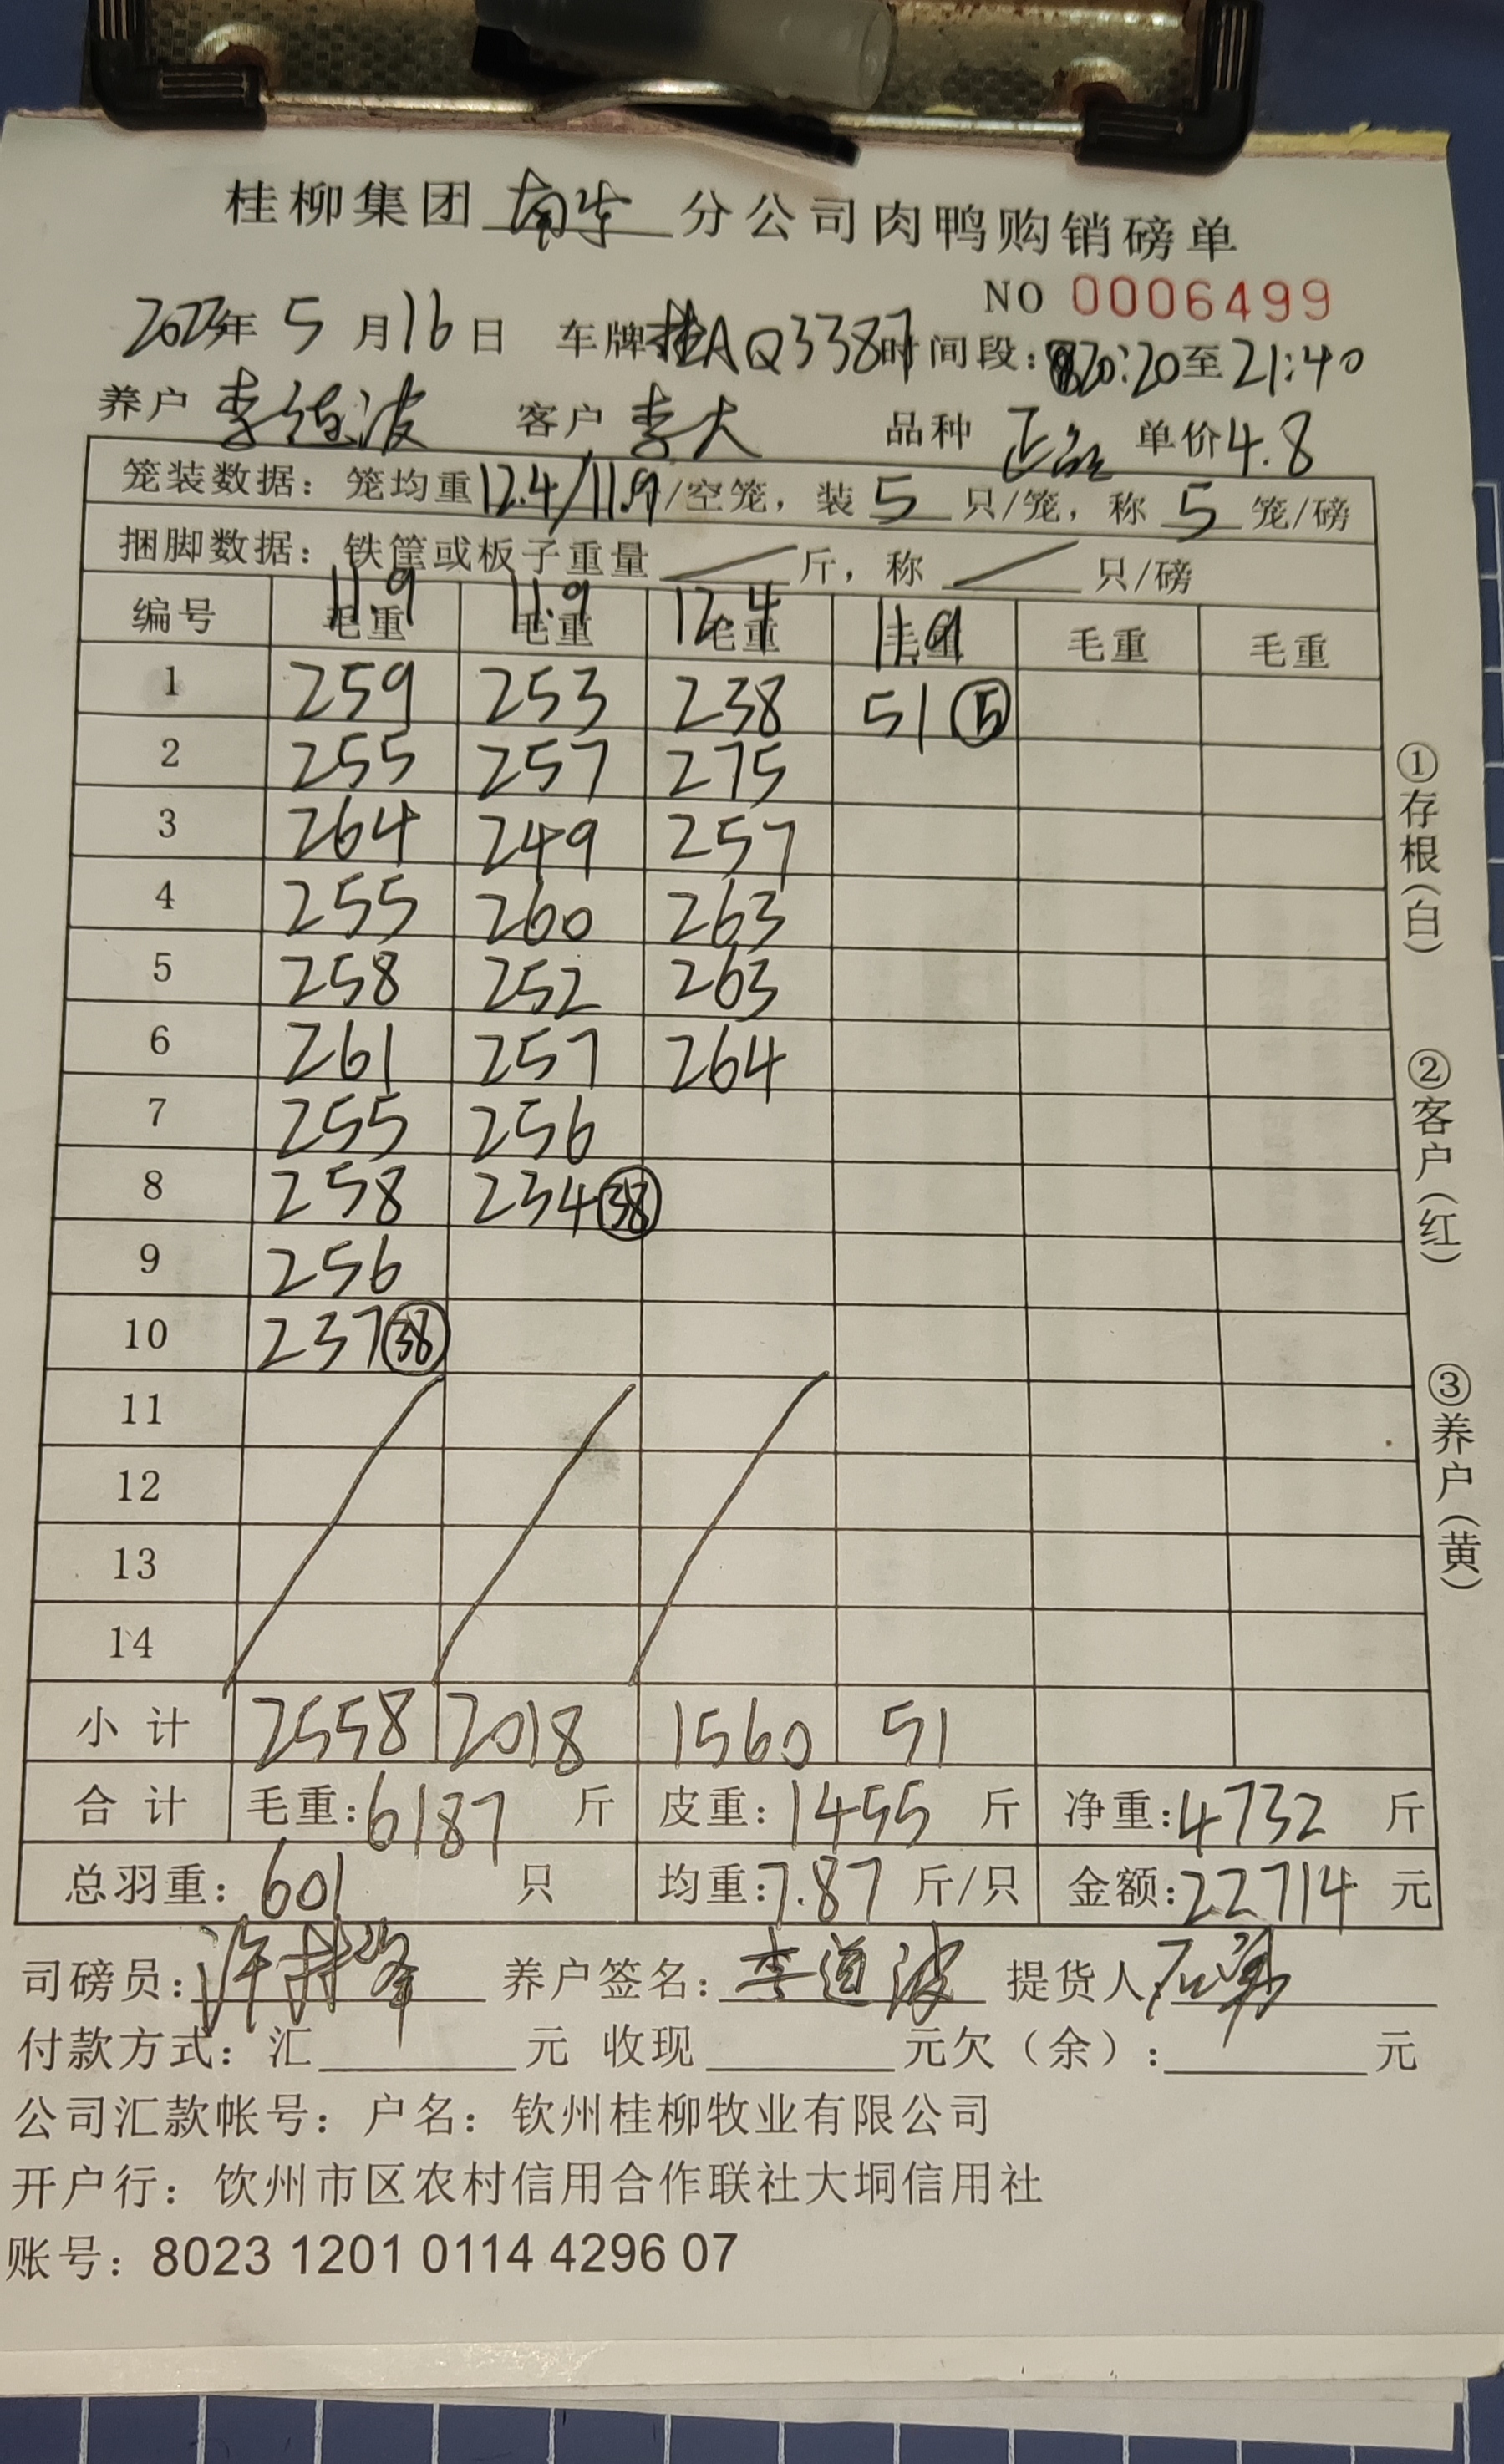 桂柳集团 南宁 分公司肉鸭购销磅单
NO 0006499
2023年 5 月 16 日 车牌 桂AQ3387 时间段: 20:20 至 21:40
养户 李道波 客户 李大 品种 正品 单价 4.8
笼装数据: 笼均重 12.4/11.9 /空笼, 装 5 只/笼, 称 5 笼/磅
捆脚数据: 铁筐或板子重量 / 斤, 称 / 只/磅
11.9 11.9 12.4 11.9
编号 毛重 毛重 毛重 毛重 毛重 毛重
1 259 253 238 51 ⑤
2 255 257 275
3 264 249 257
4 255 260 263
5 258 252 263
6 261 257 264
7 255 256
8 258 234 ㊳
9 256
10 237 ㊳
11
12
13
14
小计 2558 2018 1560 51
合计 毛重: 6187 斤 皮重: 1455 斤 净重: 4732 斤
总羽重: 601 只 均重: 7.87 斤/只 金额: 22714 元
司磅员: 许 养户签名: 李道波 提货人
付款方式: 汇 元 收现 元欠(余): 元
公司汇款帐号: 户名: 钦州桂柳牧业有限公司
开户行: 饮州市区农村信用合作联社大垌信用社
账号: 8023 1201 0114 4296 07
①存根(白)
②客户(红)
③养户(黄)